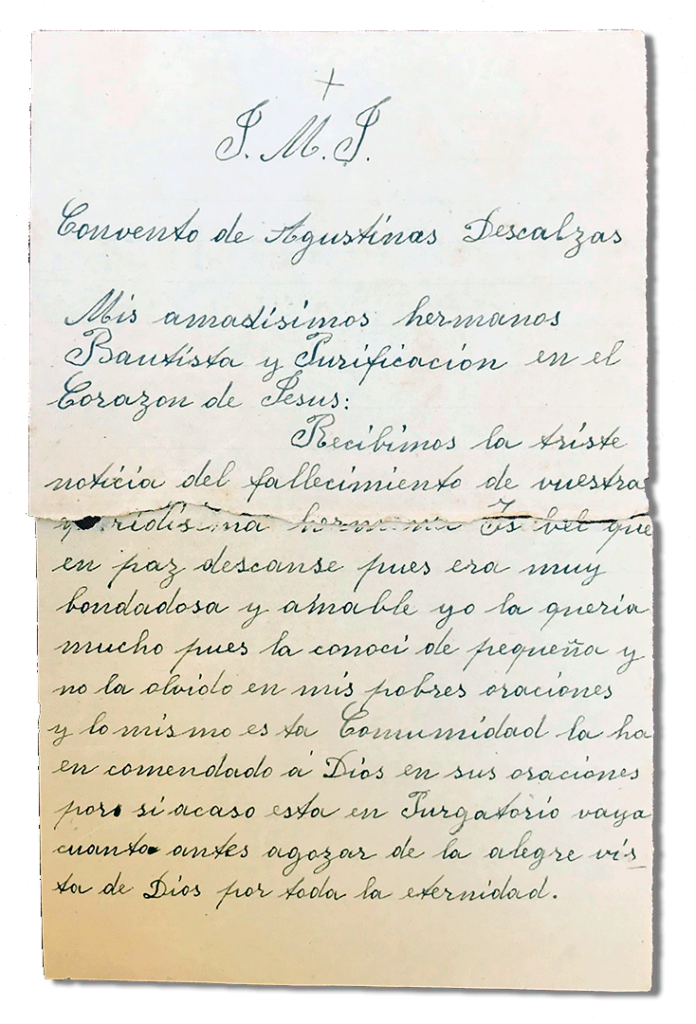 +
J. M. J.
Convento de Agustinas Descalzas
Mis amadisimos hermanos
Bautista y Purificación en el
Corazon de Jesus:
Recibimos la triste
noticia del fallecimiento de vuestra
que
en paz descanse pues era muy
bondadosa y amable yo la queria
mucho pues la conoci de pequeña y
no la olvido en mis pobres oraciones
y lo mismo es ta Comumidad la ha
en comendado á Dios en sus oraciones
por si acaso esta en Purgatorio vaya
cuanto antes agozar de la alegre vis_
ta de Dios por toda la eternidad.